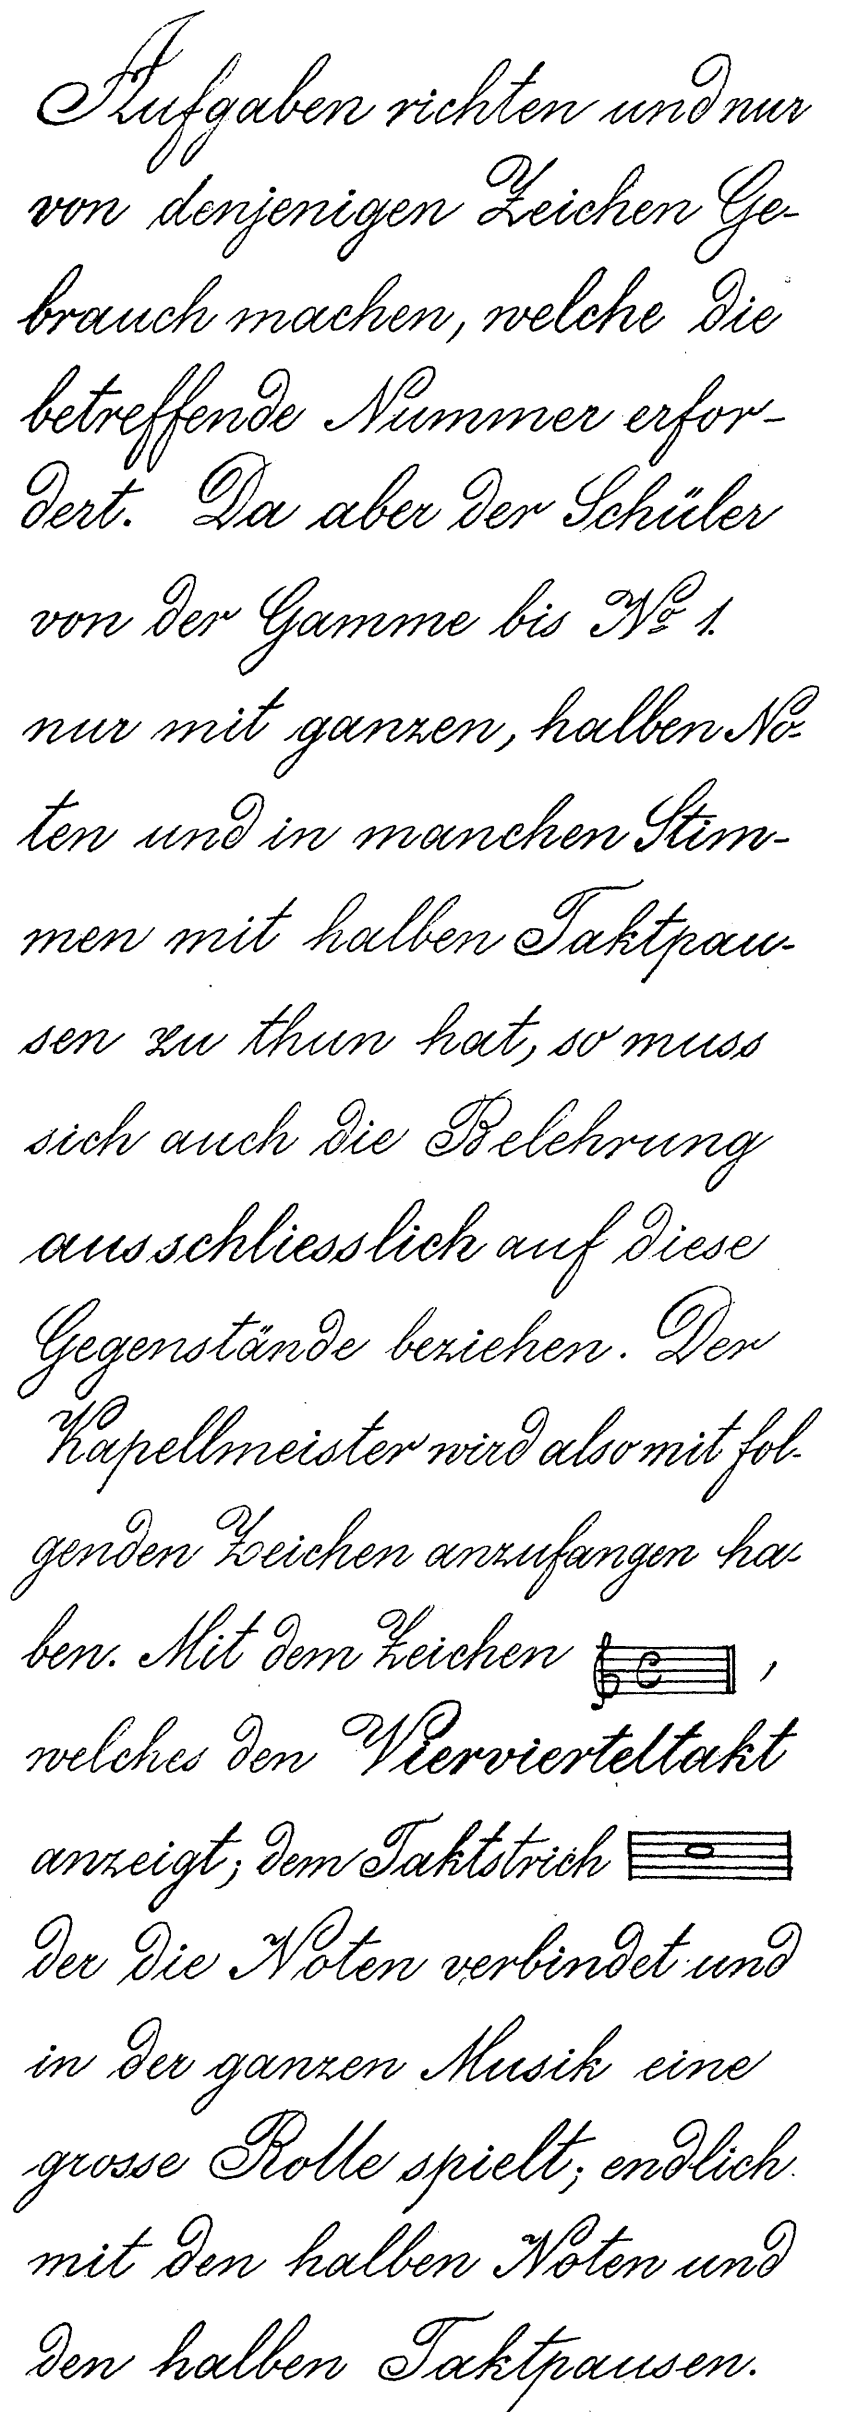 Aufgaben richten und nur
von denjenigen Zeichen Ge-
brauch machen, welche die
betreffende Nummer erfor-
dert. Da aber der Schüler
von der Gamme bis No 1.
nur mit ganzen, halben No-
ten und in manchen Stim-
men mit halben Taktpau-
sen zu thun hat, so muss
sich auch die Belehrung
ausschliesslich auf diese
Gegenstände beziehen. Der
Kapellmeister wird also mit fol-
genden Zeichen anzufangen ha-
ben. Mit dem Zeichen ,
welches den Viervierteltakt
anzeigt; dem Taktstrich
der die Noten verbindet und
in der ganzen Musik eine
grosse Rolle spielt; endlich
mit den halben Noten und
den halben Taktpausen.